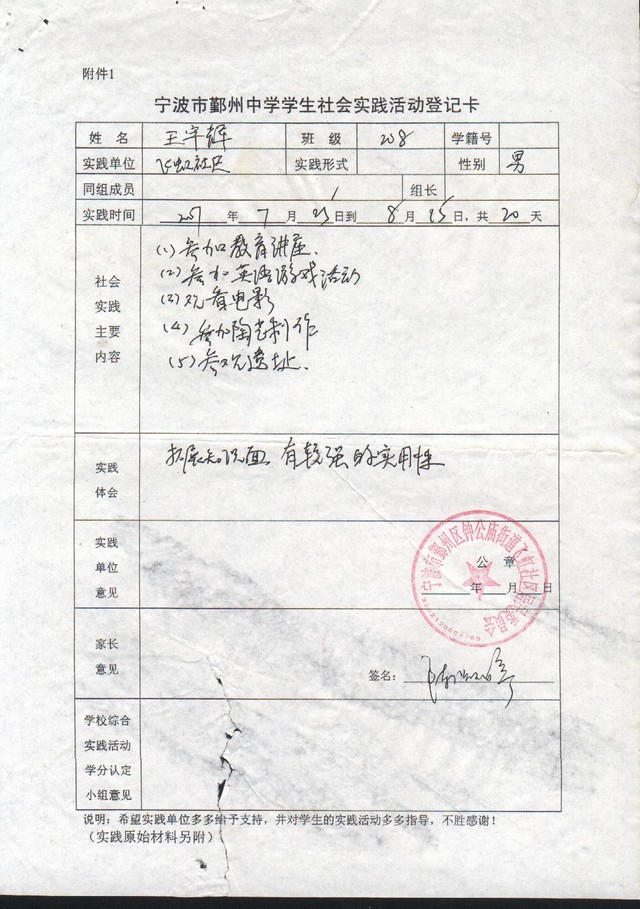 附件1
宁波市鄞州中学学生社会实践活动登记卡
姓 名 王宇辉 班 级 208 学籍号
实践单位 飞虹社区 实践形式 性别 男
同组成员 / 组长
实践时间 2007 年 7 月 25 日到 8 月 15 日，共 20 天
社会实践主要内容
(1) 参加教育讲座.
(2) 参加英语游戏活动
(3) 观看电影
(4) 参加陶艺制作
(5) 参观遗址.
实践体会
拓展知识面 有较强的实用性
实践单位意见
公 章
年 月 日
宁波市鄞州区钟公庙街道飞虹社区居民委员会
家长意见
签名：
学校综合
实践活动
学分认定
小组意见
说明：希望实践单位多多给予支持，并对学生的实践活动多多指导，不胜感谢！
（实践原始材料另附）